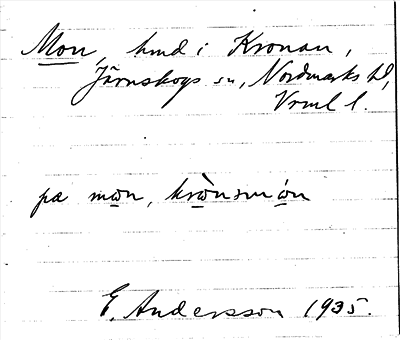 Mon, hmd i Kronan,
Järnskogs sn, Nordmarks hd,
Vrml l.
pa mo̲n, krò̲nsmó̲n
E. Andersson 1935.